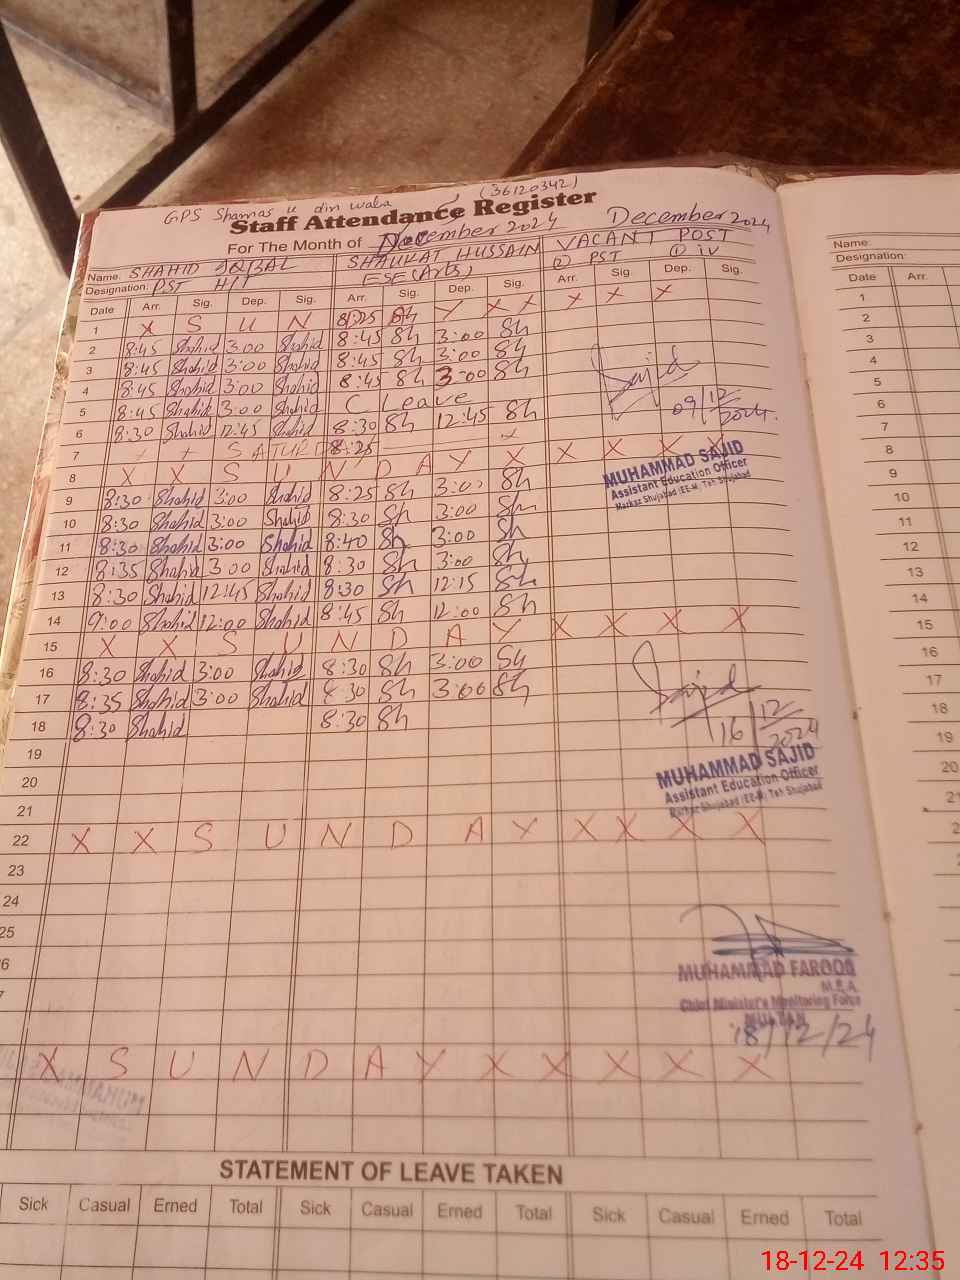 (36120342)
GPS Shamas u din wala
Staff Attendance Register
For The Month of November 2024 December 2024
Name: SHAHID IQBAL SHAUKAT HUSSAIN VACANT POST
Designation: PST H/T ESE (Arts) (2) PST (1) iv
Date Arr. Sig. Dep. Sig. Arr. Sig. Dep. Sig. Arr. Sig. Dep. Sig.
1 X S U N 8:25 Y X X X X X
2 8:45 Shahid 3:00 Shahid 8:45 Sh 3:00 Sh
3 8:45 Shahid 3:00 Shahid 8:45 Sh 3:00 Sh
4 8:45 Shahid 3:00 Shahid 8:45 Sh 3:00 Sh
5 8:45 Shahid 3:00 Shahid C Leave
6 8:30 Shahid 12:45 Shahid 8:30 Sh 12:45 Sh
7 SATURD 8:25
8 X X S U N D A Y X X X X X
9 8:30 Shahid 3:00 Shahid 8:25 Sh 3:00 Sh
10 8:30 Shahid 3:00 Shahid 8:30 Sh 3:00 Sh
11 8:30 Shahid 3:00 Shahid 8:40 Sh 3:00 Sh
12 8:35 Shahid 3:00 Shahid 8:30 Sh 3:00 Sh
13 8:30 Shahid 12:45 Shahid 8:30 Sh 12:15 Sh
14 9:00 Shahid 12:00 Shahid 8:45 Sh 12:00 Sh
15 X X S U N D A Y X X X X
16 8:30 Shahid 3:00 Shahid 8:30 Sh 3:00 Sh
17 8:35 Shahid 3:00 Shahid 8:30 Sh 3:00 Sh
18 8:30 Shahid 8:30 Sh
19
20
21
22 X X S U N D A Y X X X X
23
24
25
6
7
X S U N D A Y X X X X X
Sajid
09/12/2024
MUHAMMAD SAJID
Assistant Education Officer
Markaz Shujabad (EE-M) Teh Shujabad
Sajid
16/12/2024
MUHAMMAD SAJID
Assistant Education Officer
Markaz Shujabad (EE-M) Teh Shujabad
MUHAMMAD FAROOQ
M.E.A.
Chief Minister's Monitoring Force
MULTAN
18/12/24
STATEMENT OF LEAVE TAKEN
Sick Casual Erned Total Sick Casual Erned Total Sick Casual Erned Total
Name:
Designation:
Date Arr.
1
2
3
4
5
6
7
8
9
10
11
12
13
14
15
16
17
18
19
20
21
18-12-24 12:35